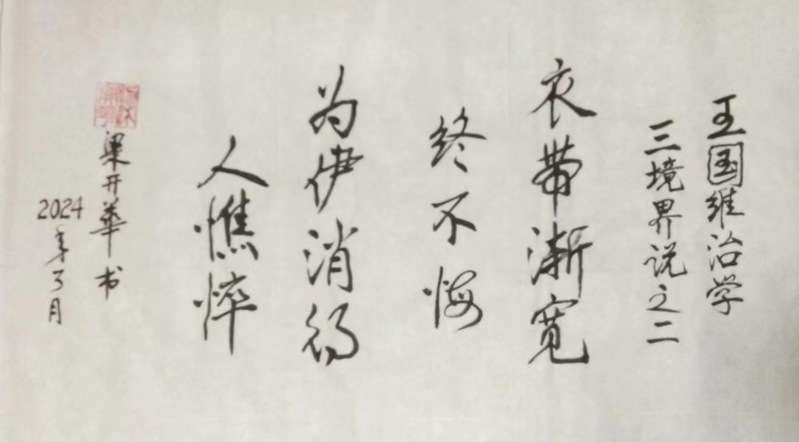 王国维治学
三境界说之二
衣带渐宽
终不悔
为伊消得
人憔悴
梁开华书
2024年3月